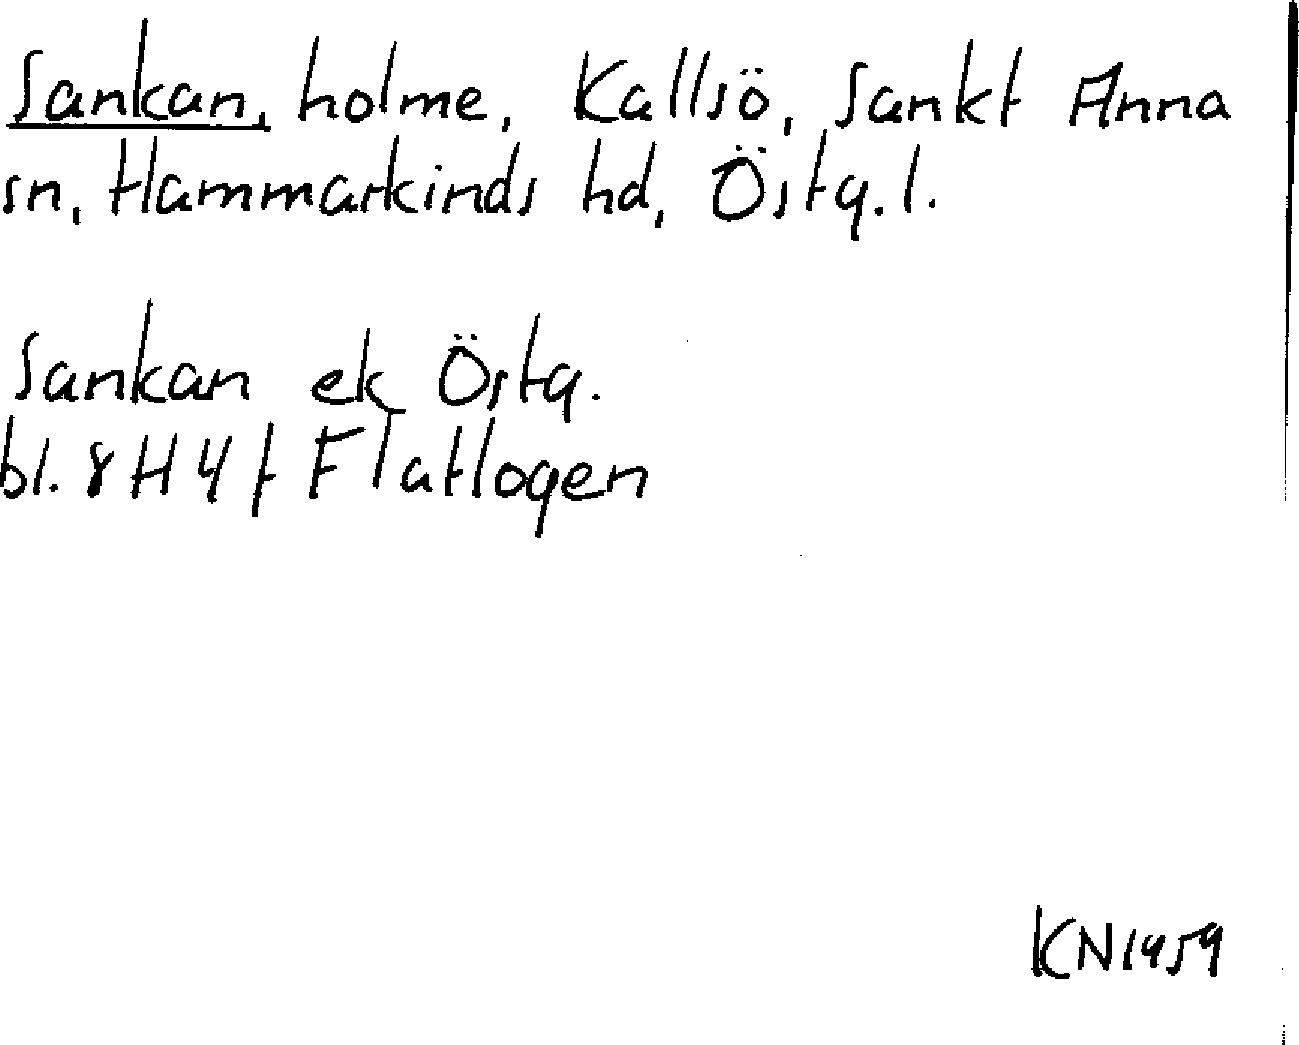 Sankan, holme, Kallsö, Sankt Anna
sn, Hammarkinds hd, Östg.l.
Sankan ek Östg.
bl. 8H4f Flatlogen
KN1959